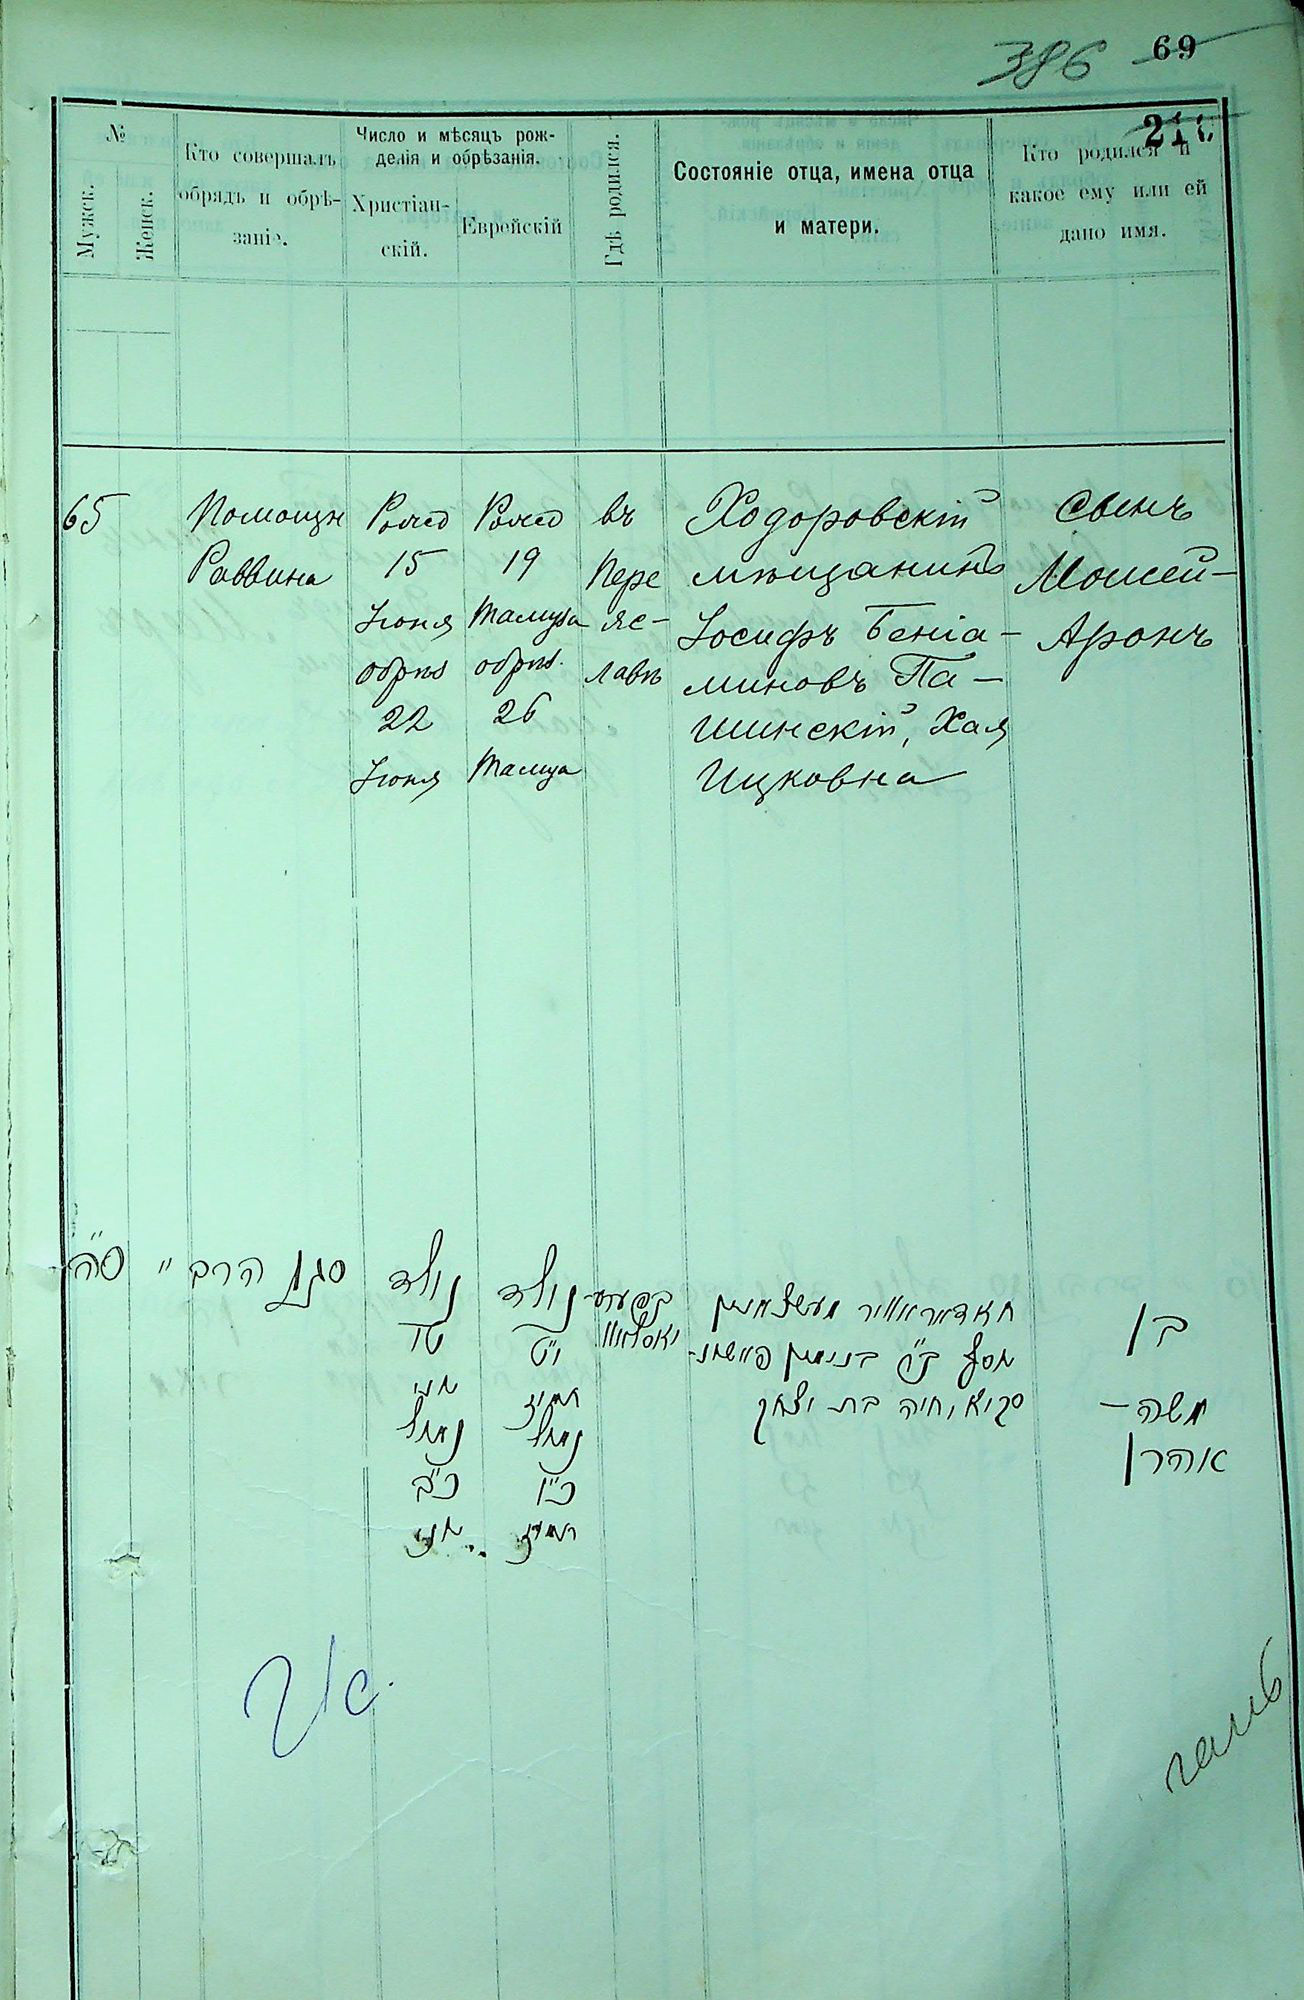 386 69
211
№
Мужск.
Женск.
Кто совершалъ
обрядъ и обрѣ-
заніе.
Число и мѣсяцъ рож-
денія и обрѣзанія.
Христіан-
скій.
Еврейскій
Гдѣ родился.
Состояніе отца, имена отца
и матери.
Кто родился и
какое ему или ей
дано имя.
65
Помощн
Раввина
Рожд
15
Іюня
обрѣз
22
Іюня
Рожд
19
Тамуза
обрѣз.
26
Тамуза
въ
Пере
яс-
лавѣ
Ходоровскій
мѣщанинъ
Іосифъ Беніа-
миновъ Па-
шинскій, Хая
Ицковна
сынъ
Мошей-
Аронъ
ס״ה
״
סגן הרב
נולד
טו
יוני
נמול
כ״ב
יוני
נולד
י״ט
תמוז
נמול
כ״ו
תמוז
בפערע-
יאסלאוו
יוסף ב״ר בנימין פאשינ-
סקי, חיה בת יצחק
בן
משה-
אהרן